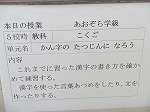 本日の授業　あおぞら学級
5校時 教科　こくご
単元名　かん字の たつじんに なろう
内容
これまでに習った漢字の書き方を確か
めて練習する。
漢字を使った言葉あつめをしたり、文
を作ったりする。